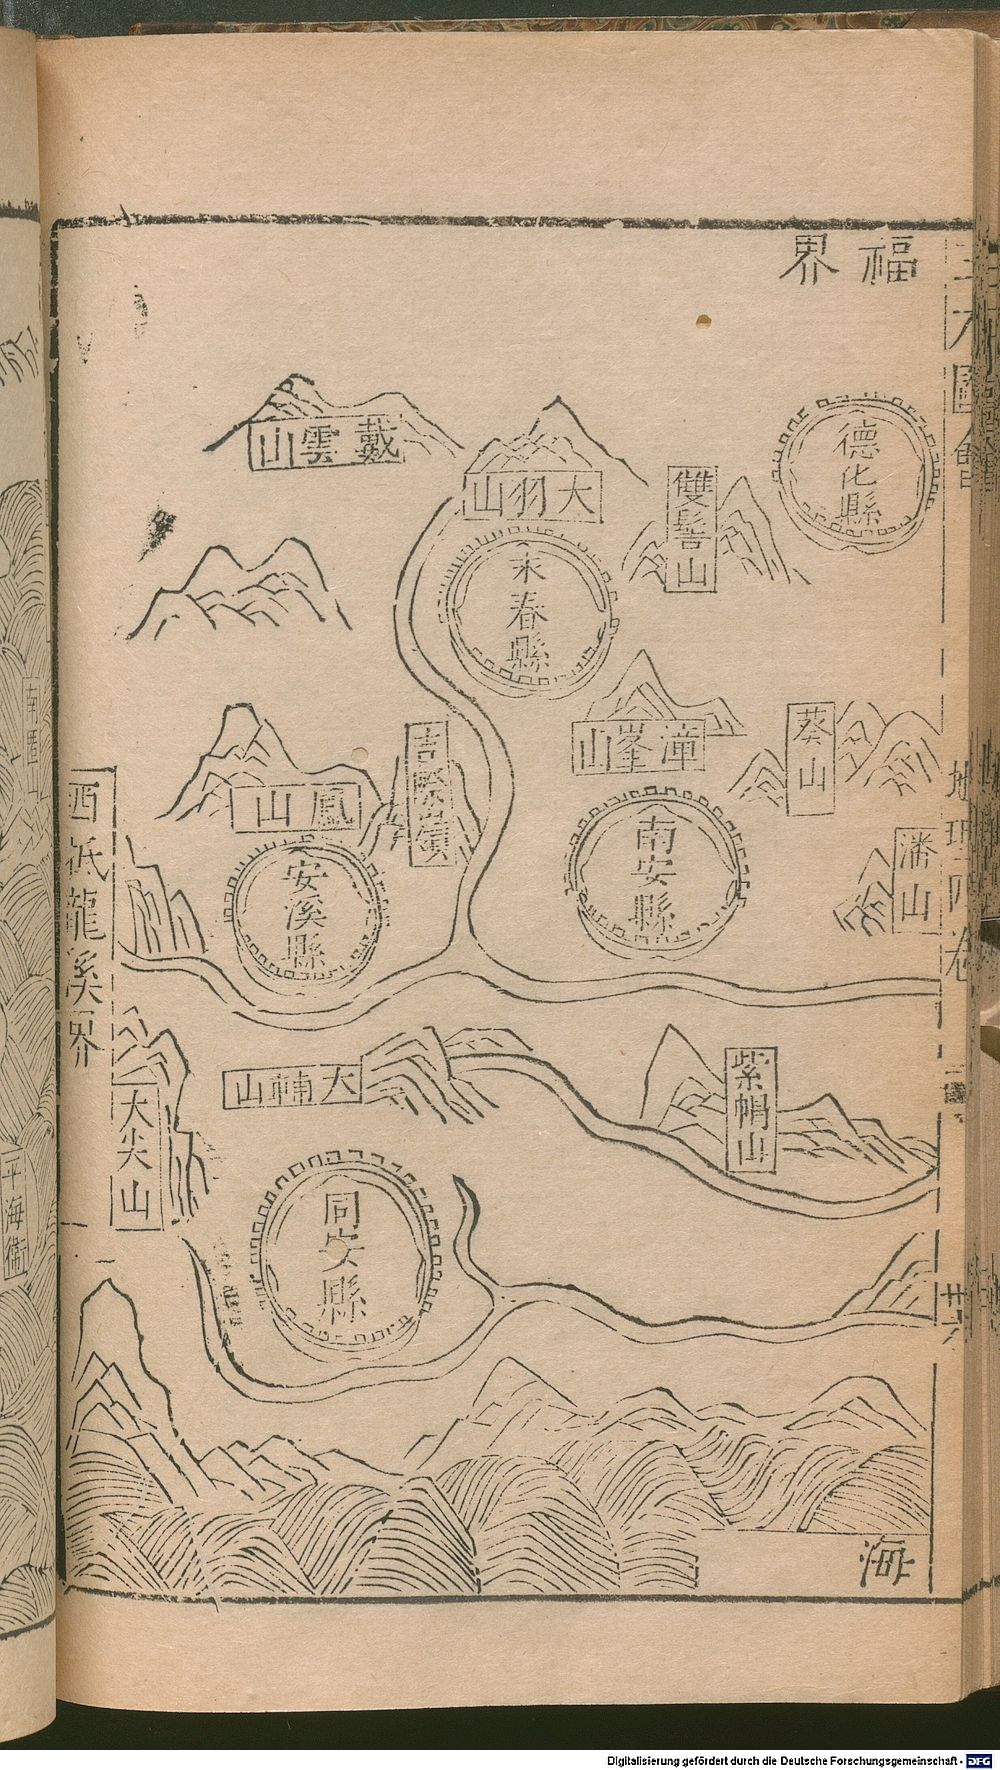 福
界
德化縣
雙髻山
大羽山
戴雲山
永春縣
葵山
潘山
潼峯山
南安縣
鳳山
安溪縣
西抵龍溪界
紫帽山
大輔山
大尖山
同安縣
海
南匿山
平海衛
地理四卷
廿六
Digitalisierung gefördert durch die Deutsche Forschungsgemeinschaft - DFG